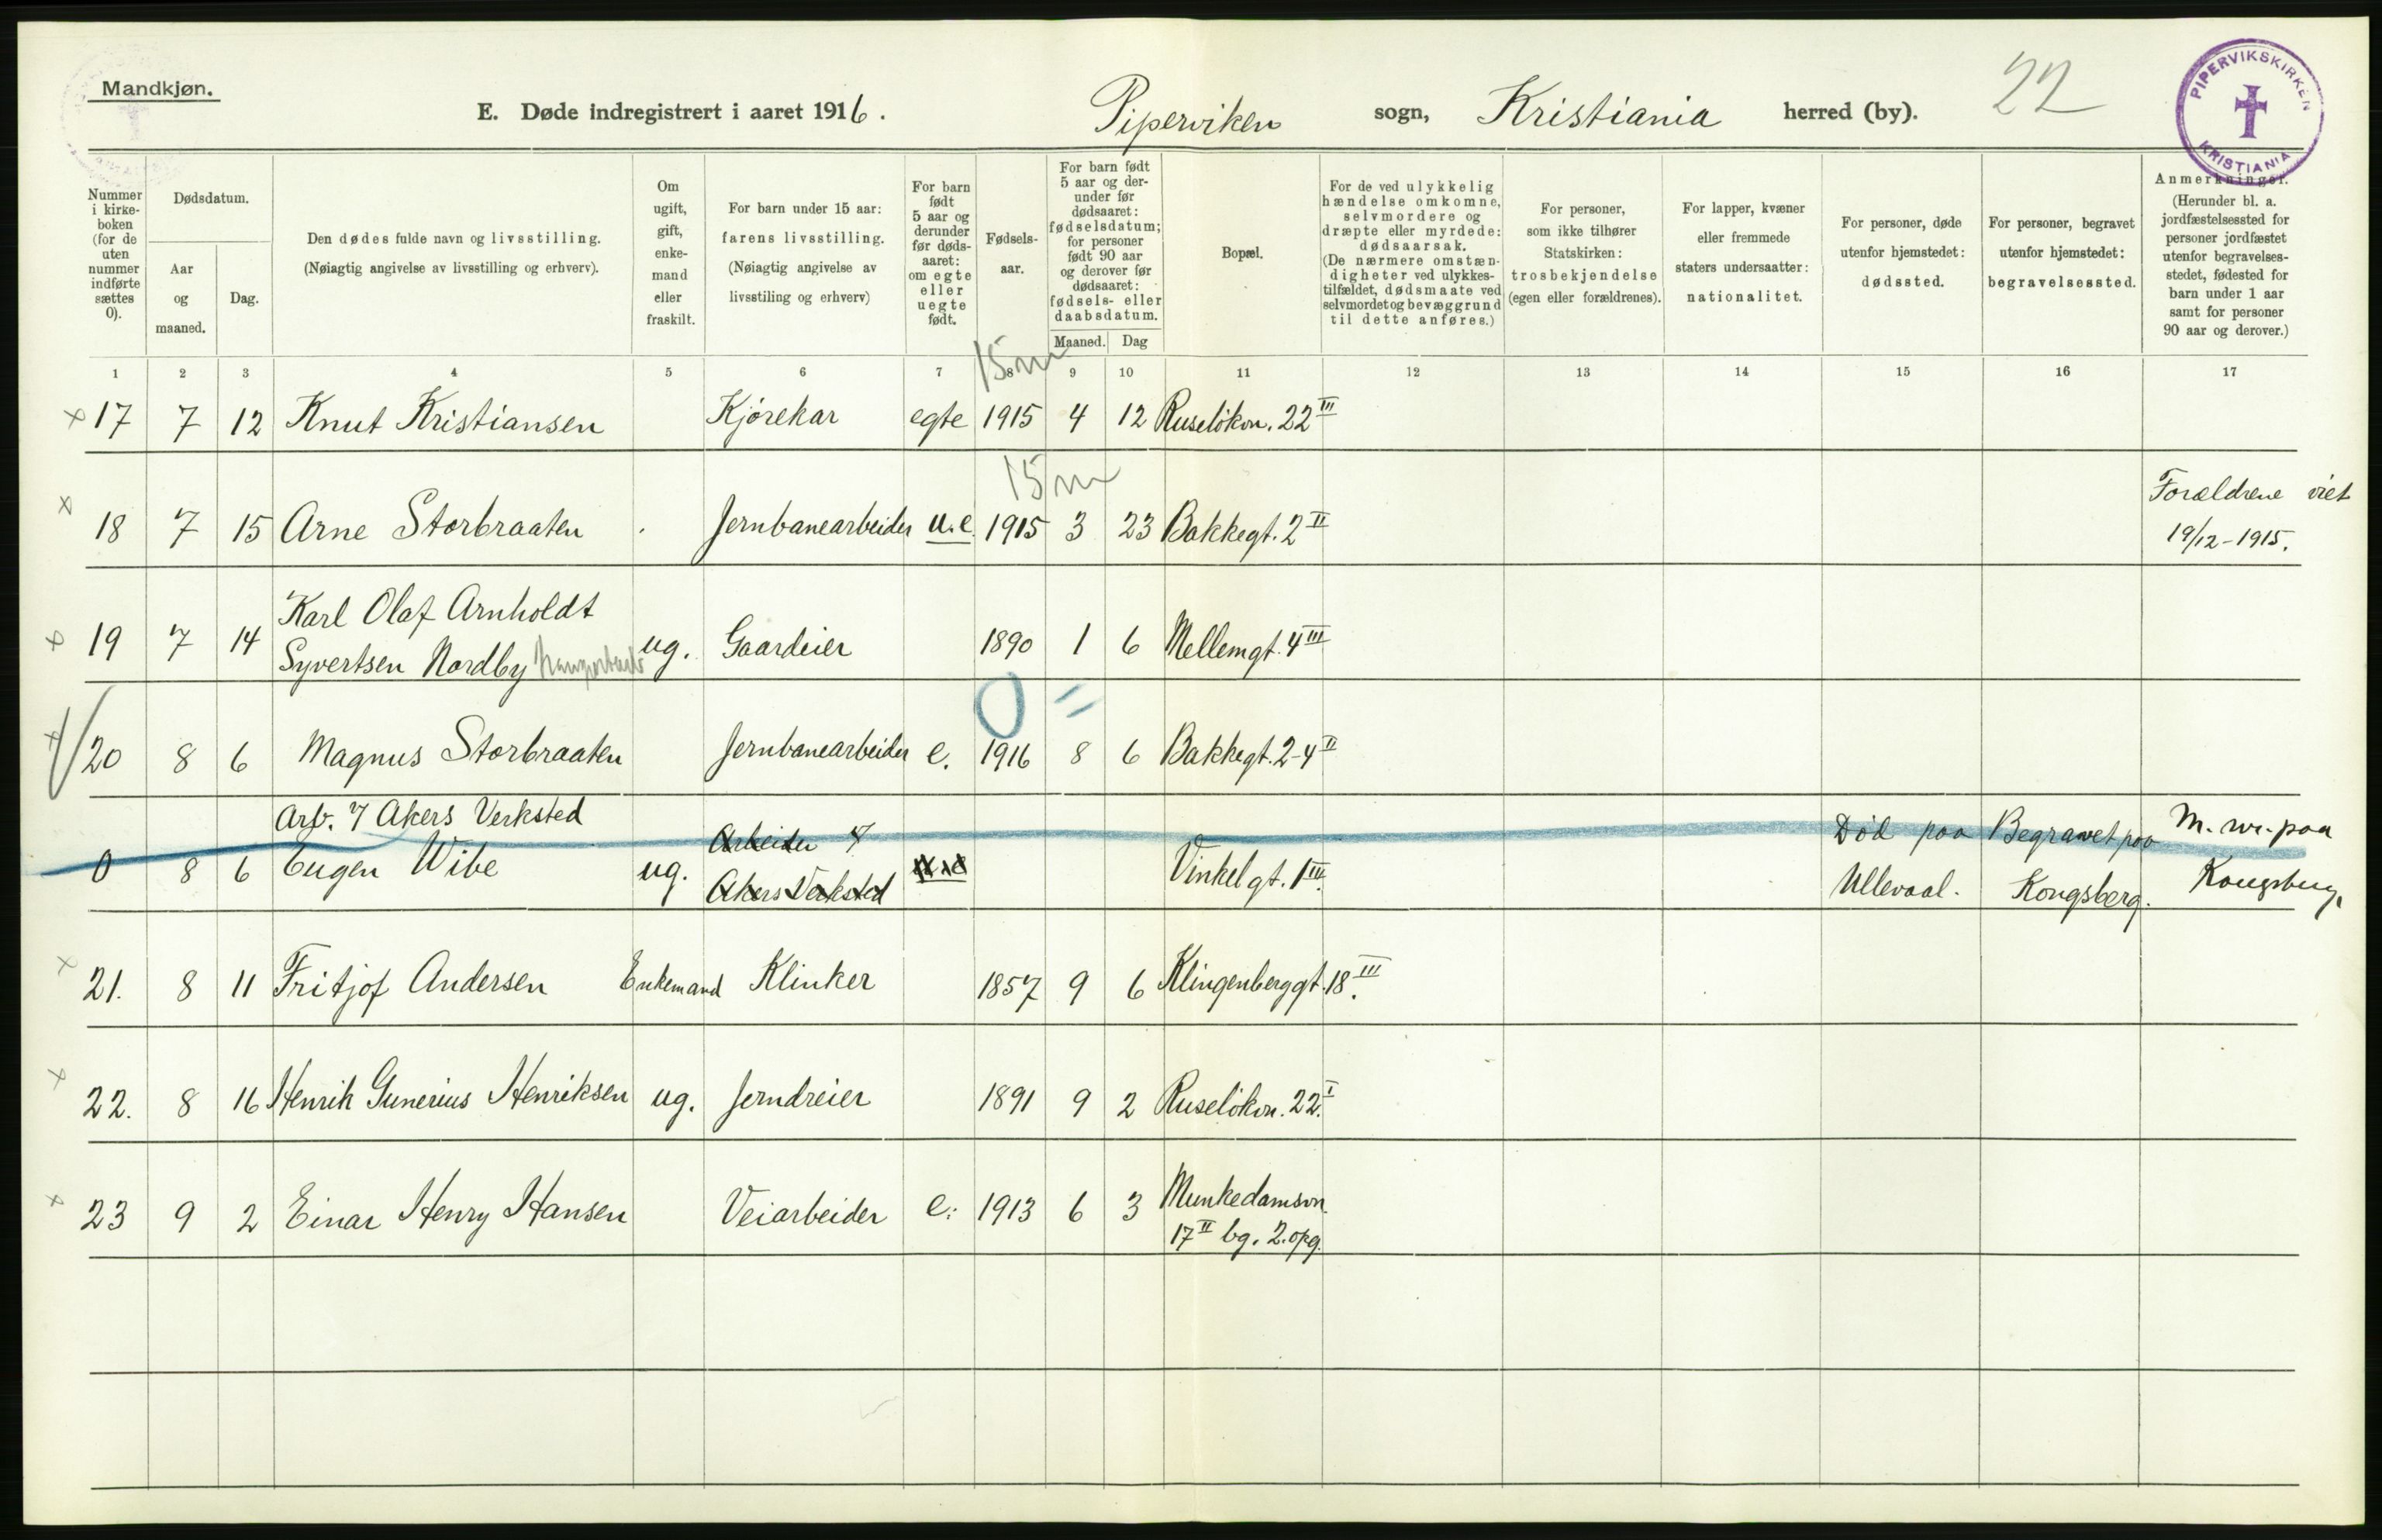 Mandkjøn.
E. Døde indregistrert i aaret 1916. Piperviken sogn, Kristiania herred (by). 22
PIPERVIKSKIRKEN
KRISTIANIA
Nummer i kirke-boken (for de uten nummer indførte sættes 0).
Dødsdatum.
Aar og maaned.
Dag.
Den dødes fulde navn og livsstilling.
(Nøiagtig angivelse av livsstilling og erhverv).
Om ugift, gift, enke-mand eller fraskilt.
For barn under 15 aar:
farens livsstilling.
(Nøiagtig angivelse av
livsstiling og erhverv)
For barn født 5 aar og derunder før døds-aaret: om egte eller uegte født.
Fødsels-aar.
For barn født 5 aar og der-under før dødsaaret: fødselsdatum; for personer født 90 aar og derover før dødsaaret: fødsels- eller daabsdatum.
Maaned. Dag
Bopæl.
For de ved ulykkelig hændelse omkomne, selvmordere og dræpte eller myrdede: dødsaarsak.
(De nærmere omstæn-digheter ved ulykkes-tilfældet, dødsmaate ved selvmordet og bevæggrund til dette anføres.)
For personer, som ikke tilhører Statskirken: trosbekjendelse (egen eller forældrenes).
For lapper, kvæner eller fremmede staters undersaatter: nationalitet.
For personer, døde utenfor hjemstedet: dødssted.
For personer, begravet utenfor hjemstedet: begravelsessted.
Anmerkninger.
(Herunder bl. a. jordfæstelsessted for personer jordfæstet utenfor begravelses-stedet, fødested for barn under 1 aar samt for personer 90 aar og derover.)
1 2 3 4 5 6 7 8 9 10 11 12 13 14 15 16 17
15 m
x 17 7 12 Knut Kristiansen Kjörekar egte 1915 4 12 Ruselökvn. 22 III
15 m
x 18 7 15 Arne Storbraaten . Jernbanearbeider u.e. 1915 3 23 Bakkegt. 2 II Forældrene viet
19/12-1915.
Karl Olaf Arnholdt
x 19 7 14 Syvertsen Nordby ug. Gaardeier 1890 1 6 Mellemgt. 4 III
0 =
x 20 8 6 Magnus Storbraaten Jernbanearbeider e. 1916 8 6 Bakkegt. 2-4 II
Arb. 7 Akers Verksted Arbeider 7 Død paa Begravet paa M. vr. paa
0 8 6 Eugen Wibe ug. Akers Verksted u.e Vinkelgt. 1 III. Ullevaal. Kongsberg. Kongsberg.
x 21. 8 11 Fritjof Andersen Enkemand Klinker 1857 9 6 Klingenberggt. 18 III.
x 22. 8 16 Henrik Gunerius Henriksen ug. Jerndreier 1891 9 2 Ruselökvn. 22. I
x 23 9 2 Einar Henry Hansen Veiarbeider e: 1913 6 3 Munkedamsvn.
17 II bg. 2. opg.